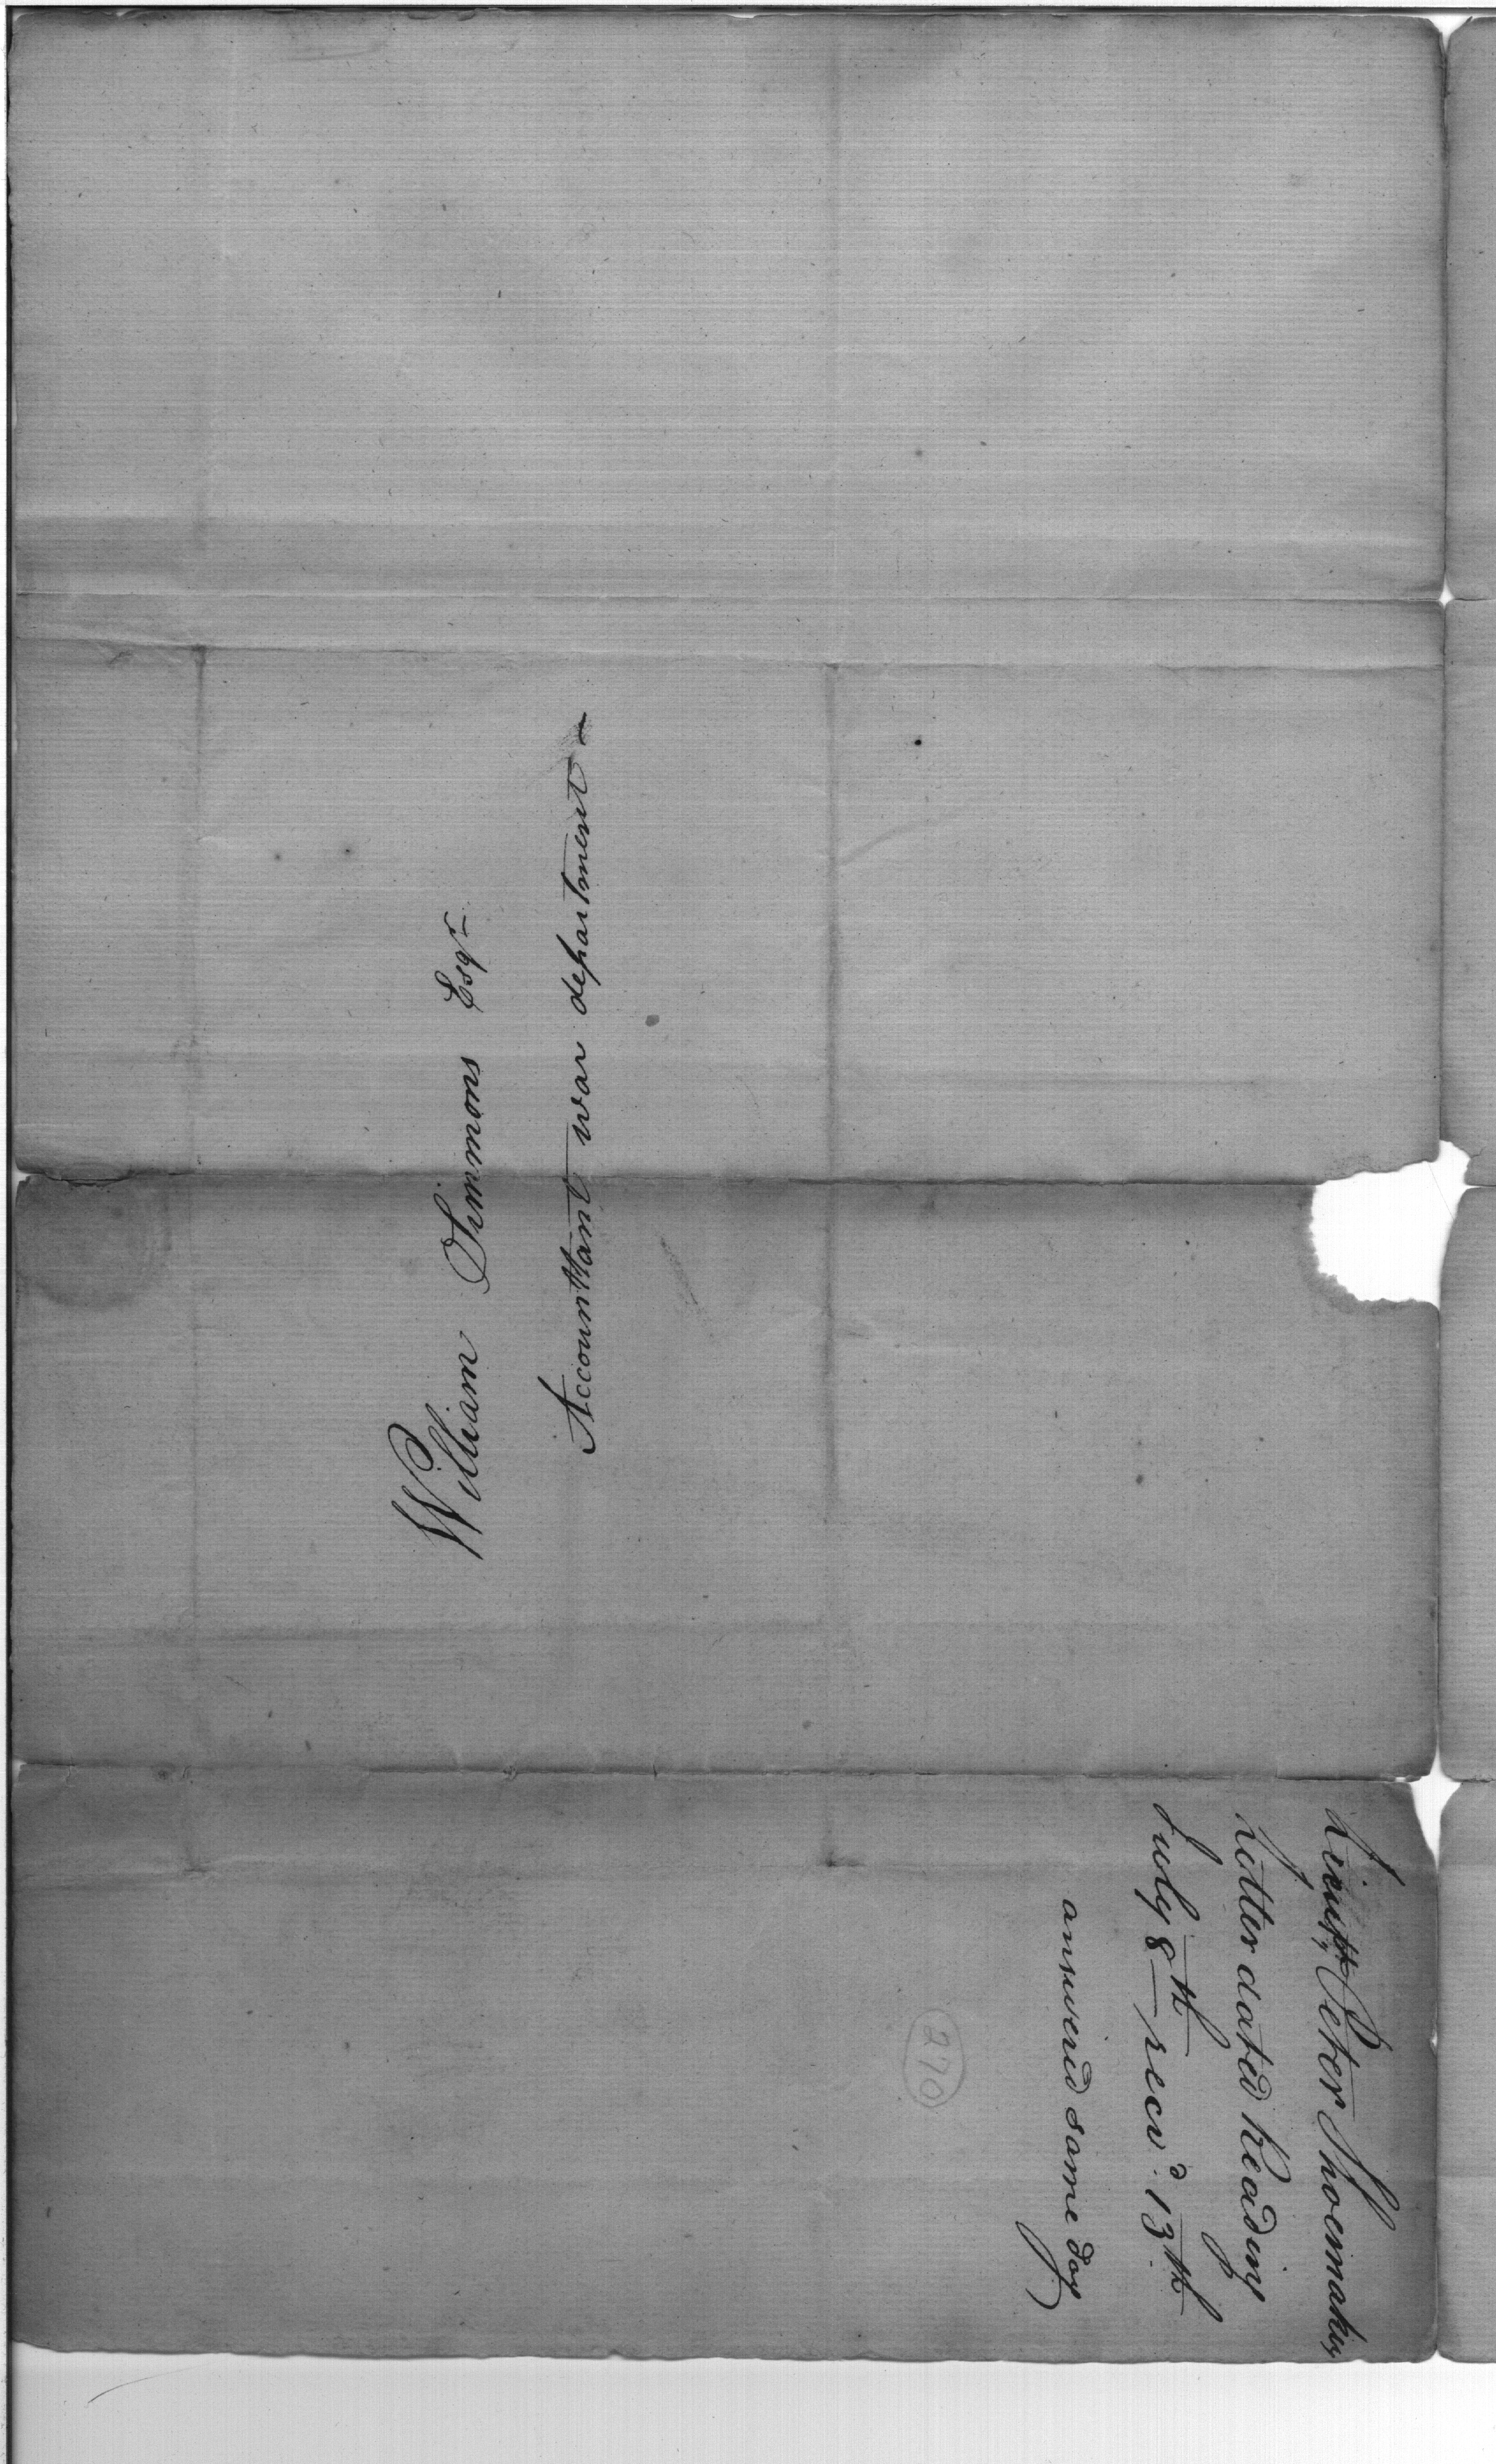 William Simmons Esqr
Accounttant war department –
Lieutt, Peter Shoemakers
Letter dated Reading
July 8th recvd. 13th
answered same day
270